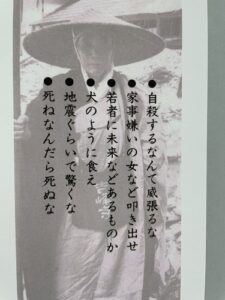 ●自殺するなんて威張るな
●家事嫌いの女など叩き出せ
●若者に未来などあるものか
●犬のように食え
●地震ぐらいで驚くな
●死ねなんだら死ぬな